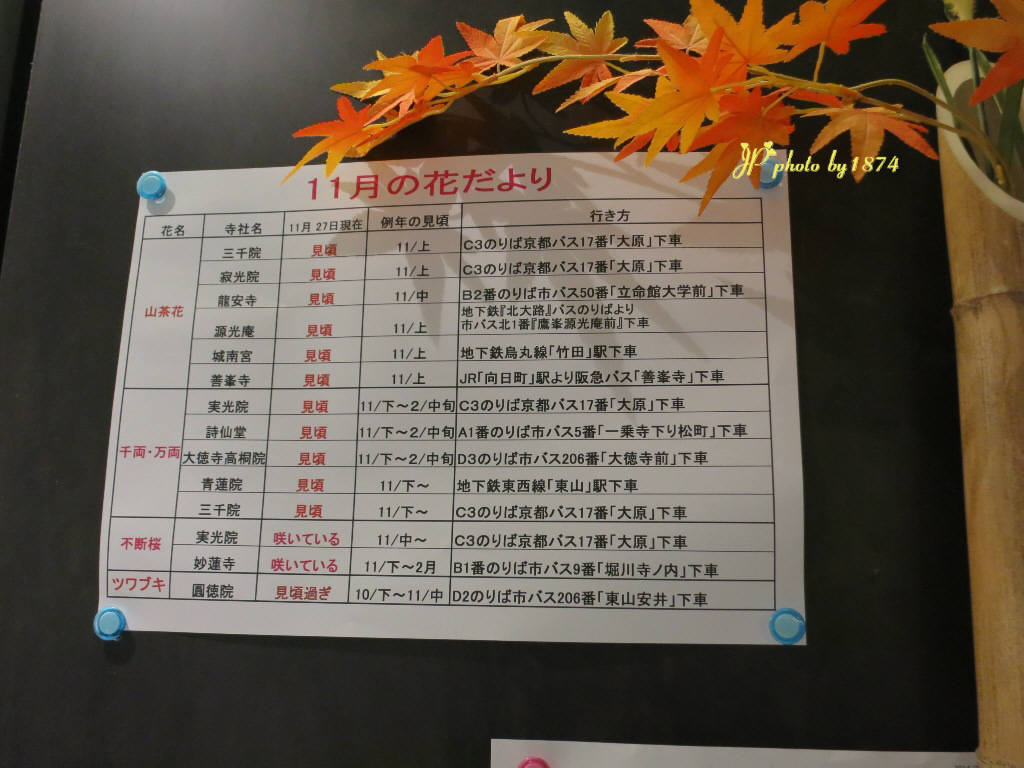 JP photo by 1874
11月の花だより
花名 寺社名 11月 27日現在 例年の見頃 行き方
山茶花 三千院 見頃 11/上 C3のりば京都バス17番「大原」下車
寂光院 見頃 11/上 C3のりば京都バス17番「大原」下車
龍安寺 見頃 11/中 B2番のりば市バス50番「立命館大学前」下車
源光庵 見頃 11/上 地下鉄『北大路』バスのりばより
市バス北1番『鷹峯源光庵前』下車
城南宮 見頃 11/上 地下鉄烏丸線「竹田」駅下車
善峯寺 見頃 11/上 JR「向日町」駅より阪急バス「善峯寺」下車
千両・万両 実光院 見頃 11/下～2/中旬 C3のりば京都バス17番「大原」下車
詩仙堂 見頃 11/下～2/中旬 A1番のりば市バス5番「一乗寺下り松町」下車
大徳寺高桐院 見頃 11/下～2/中旬 D3のりば市バス206番「大徳寺前」下車
青蓮院 見頃 11/下～ 地下鉄東西線「東山」駅下車
三千院 見頃 11/下～ C3のりば京都バス17番「大原」下車
不断桜 実光院 咲いている 11/中～ C3のりば京都バス17番「大原」下車
妙蓮寺 咲いている 11/下～2月 B1番のりば市バス9番「堀川寺ノ内」下車
ツワブキ 圓徳院 見頃過ぎ 10/下～11/中 D2のりば市バス206番「東山安井」下車